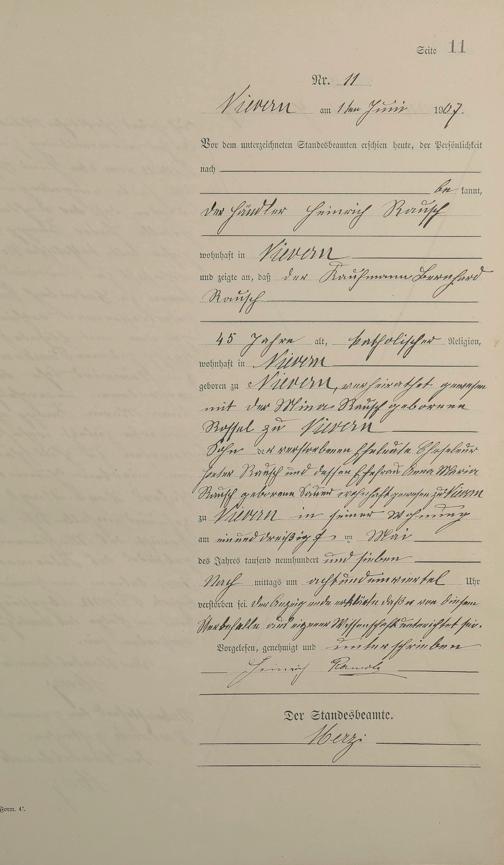 Seite 11
Nr. 11
Nievern am 1ten Juni 1907.
Vor dem unterzeichneten Standesbeamten erschien heute, der Persönlichkeit
nach
be kannt,
der Händler Heinrich Rausch
wohnhaft in Nievern
und zeigte an, daß der Kaufmann Bernhard
Rausch
45 Jahre alt, katholischer Religion,
wohnhaft in Nievern
geboren zu Nievern, verheirathet gewesen
mit der Mina Rausch geborenen
Rossel zu Nievern
Sohn der verstorbenen Eheleute
Peter Rausch und dessen Ehefrau Anna Maria
Rausch geborene Sauer wohnhaft gewesen zu Nievern
zu Nievern in seiner Wohnung
am einunddreißigsten Mai
des Jahres tausend neunhundert und sieben
Nach mittags um achtundeinviertel Uhr
verstorben sei. Der Anzeigende erklärte daß er von diesem
Sterbefalle aus eigener Wissenschaft unterrichtet sei.
Vorgelesen, genehmigt und unterschrieben
Heinrich Rausch
Der Standesbeamte.
Form. C.